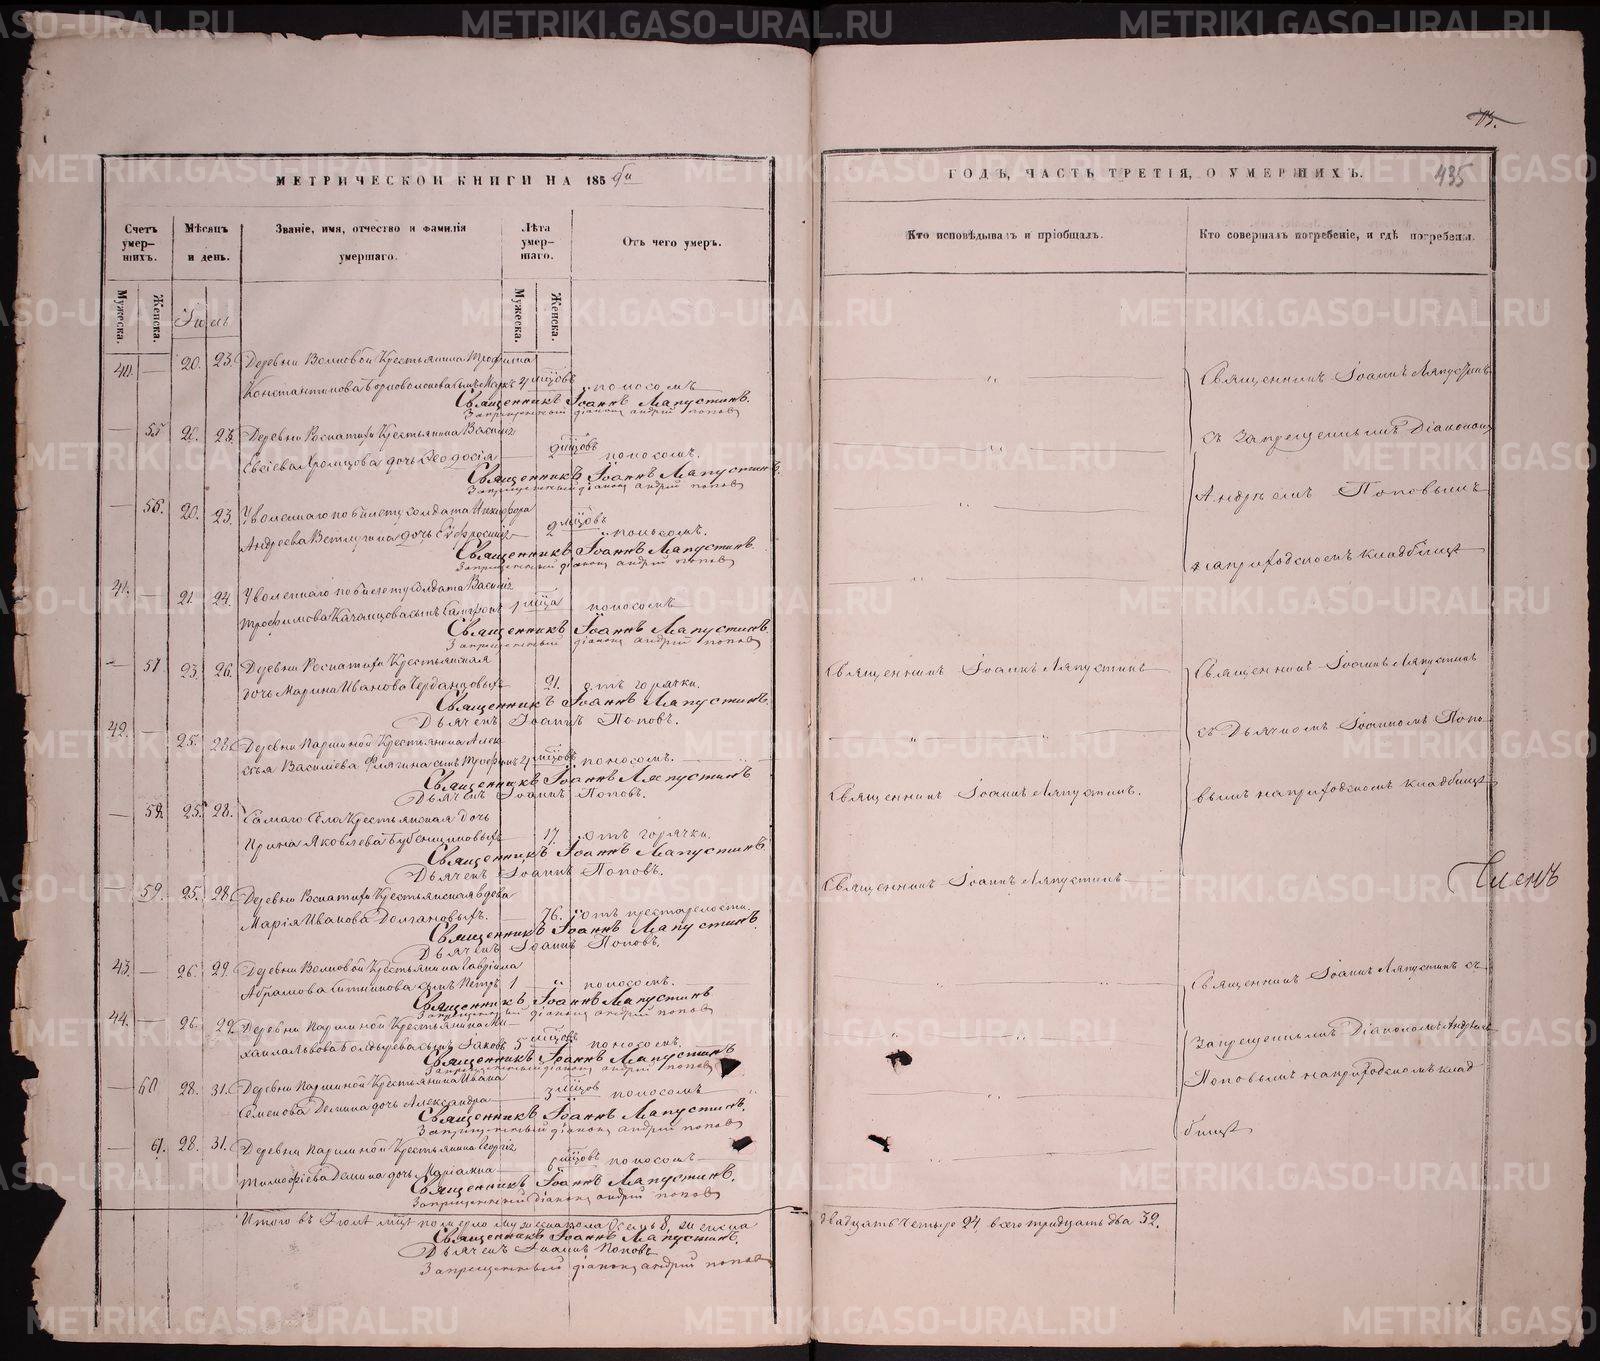 МЕТРИЧЕСКОЙ КНИГИ НА 185
Счетъ умершихъ.
Мѣсяцъ и день.
Званіе, имя, отчество и фамилія умершаго.
Лѣта умершаго.
Отъ чего умеръ.
Мужеска.
Женска.
Мужеска.
Женска.
Іюль
20. 23. Деревни Волковой Крестьянина Трофима
Константинова сынъ Маркъ 4 мцовъ поносомъ
Священникъ Іоаннъ Ляпустинъ.
Запрещенный діаконъ андрій поповъ
55 20. 23. Деревни Крестьянина Василія
дочь Ѳеодосія 2 мцовъ поносомъ.
Священникъ Іоаннъ Ляпустинъ.
Запрещенный діаконъ андрій поповъ
56. 20. 23. Уволеннаго по билету солдата Никифора
Андреева Ветлугина дочь 2 мцовъ поносомъ.
Священникъ Іоаннъ Ляпустинъ.
Запрещенный діаконъ андрій поповъ
41. 21. 24. Уволеннаго по билету солдата Василія
Трофимова сынъ 1 мца поносомъ
Священникъ Іоаннъ Ляпустинъ.
Запрещенный діаконъ андрій поповъ
57 23. 26. Деревни Крестьянская
дочь Марина Иванова 21. отъ горячки.
Священникъ Іоаннъ Ляпустинъ.
Дьячекъ Іоаннъ Поповъ.
42. 25. 28. Деревни Паршиной Крестьянина Алек
сѣя Василіева сынъ Трофимъ 4 мцовъ поносомъ.
Священникъ Іоаннъ Ляпустинъ
Дьячекъ Іоаннъ Поповъ.
58. 25. 28. Самаго Села Крестьянская дочь
Ирина Яковлева Бубенщиковыхъ 17. отъ горячки.
Священникъ Іоаннъ Ляпустинъ.
Дьячекъ Іоаннъ Поповъ.
59. 25. 28. Деревни Крестьянская вдова
Марія Иванова Долгановыхъ. 76. отъ престарелости.
Священникъ Іоаннъ Ляпустинъ.
Дьячекъ Іоаннъ Поповъ.
43. 26. 29. Деревни Волковой Крестьянина Гавріила
Абрамова Ситникова сынъ Петръ 1 поносомъ.
Священникъ Іоаннъ Ляпустинъ
Запрещенный діаконъ андрій поповъ
44. 26. 29. Деревни Паршиной Крестьянина Ми
хаила Львова сынъ Іаковъ 5 мцовъ поносомъ.
Священникъ Іоаннъ Ляпустинъ
Запрещенный діаконъ андрій поповъ
60 28. 31. Деревни Паршиной Крестьянина Ивана
Семенова Демина дочь Александра 3 мцов поносомъ
Священникъ Іоаннъ Ляпустинъ.
Запрещенный діаконъ андрій поповъ
61. 28. 31. Деревни Паршиной Крестьянина Георгія
Тимофѣева Демина дочь Маріамна 6 мцовъ поносомъ
Священникъ Іоаннъ Ляпустинъ.
Запрещенный діаконъ андрій поповъ
Итого въ Іюлѣ мцѣ померло мужеска пола Осемь 8, женска
Священникъ Іоаннъ Ляпустинъ.
Дьячекъ Іоаннъ Поповъ
Запрещенный діаконъ андрій поповъ
ГОДЪ, ЧАСТЬ ТРЕТІЯ, О УМЕРШИХЪ.
435
Кто исповѣдывалъ и пріобщалъ.
Кто совершалъ погребеніе, и гдѣ погребены.
Священникъ Іоаннъ Ляпустинъ
съ Запрещеннымъ Діакономъ
Андреемъ Поповымъ
на приходскомъ кладбищѣ
Священникъ Іоаннъ Ляпустинъ
Священникъ Іоаннъ Ляпустинъ
съ Дьячкомъ Іоанномъ Попо
Священникъ Іоаннъ Ляпустинъ.
вымъ на приходскомъ кладбищѣ
Священникъ Іоаннъ Ляпустинъ
Членъ
Священникъ Іоаннъ Ляпустинъ съ
Запрещеннымъ Діакономъ Андреемъ
Поповымъ на приходскомъ клад
бищѣ
двадцать четыре 24, всего тридцать два 32.
METRIKI.GASO-URAL.RU